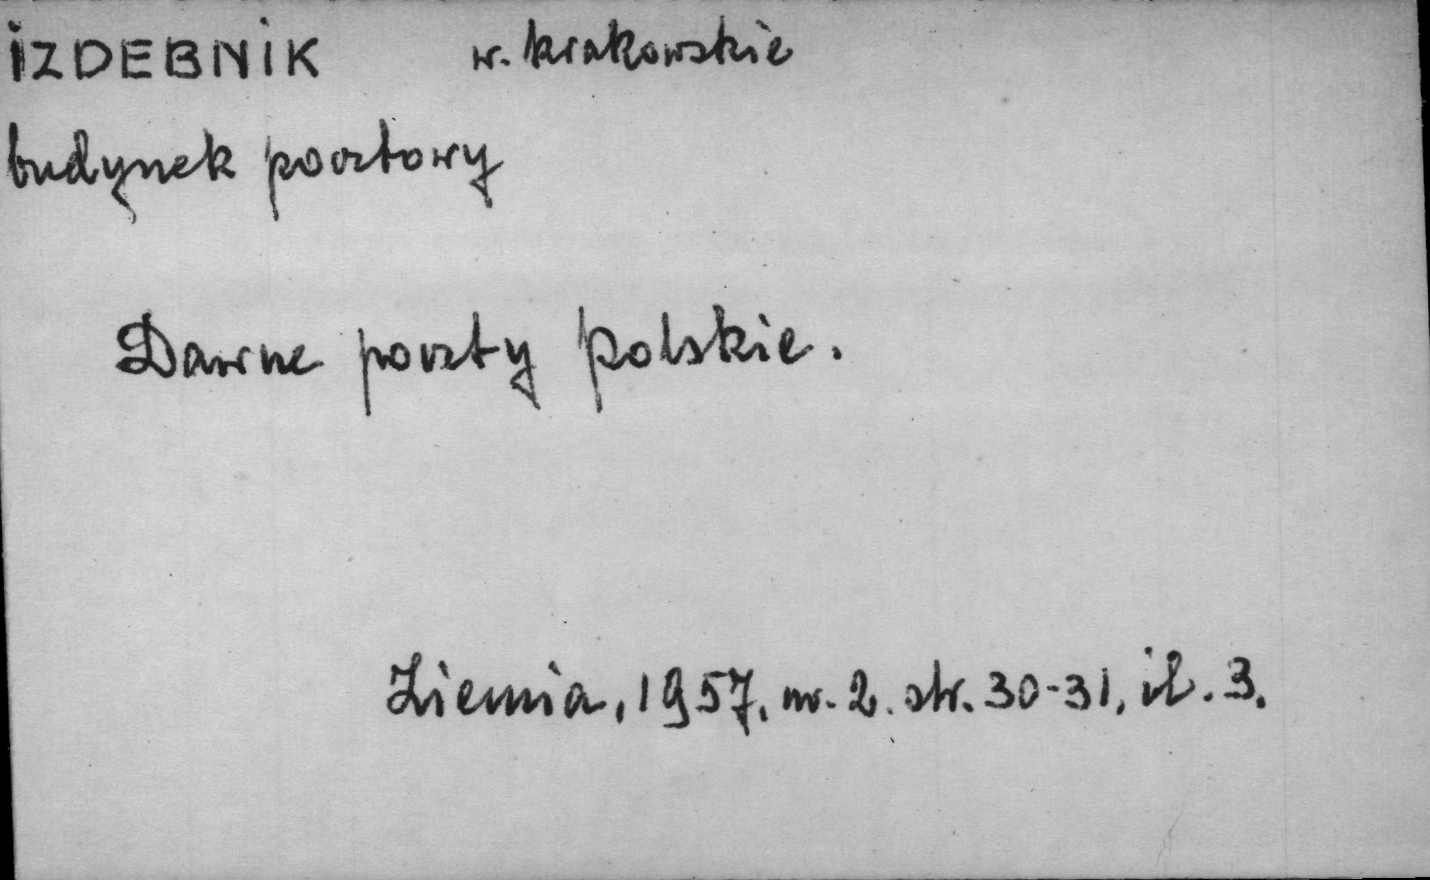 IZDEBNIK w. krakowskie
budynek pocztowy
Dawne poczty polskie.
Ziemia, 1957, nr. 2. str. 30-31, il. 3.